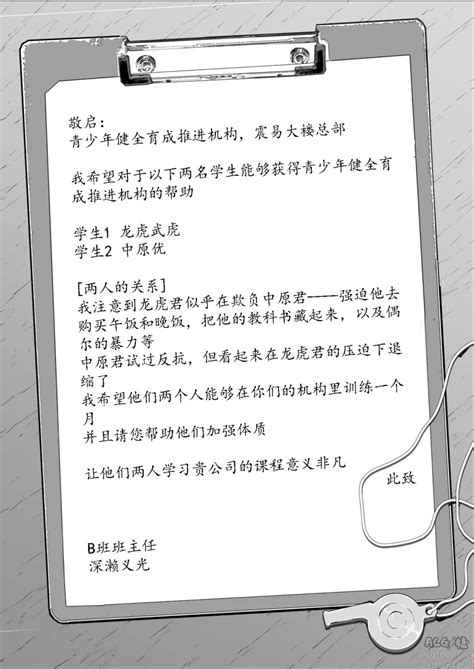 敬启：
青少年健全育成推进机构，震易大楼总部
我希望对于以下两名学生能够获得青少年健全育
成推进机构的帮助
学生1 龙虎武虎
学生2 中原优
[两人的关系]
我注意到龙虎君似乎在欺负中原君——强迫他去
购买午饭和晚饭，把他的教科书藏起来，以及偶
尔的暴力等
中原君试过反抗，但看起来在龙虎君的压迫下退
缩了
我希望他们两个人能够在你们的机构里训练一个
月
并且请您帮助他们加强体质
让他们两人学习贵公司的课程意义非凡
此致
B班班主任
深濑义光